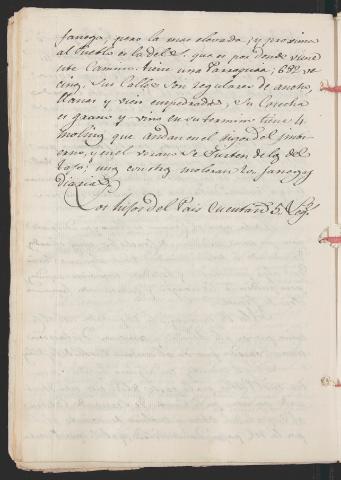 fanega, pero la mas elevada, y proxima
al Pueblo es la del S. que es por donde viene
este Camino. tiene una Parroquia; 680 ve
cin.s Sus Calles son regulares de ancho
llanas y vien empedradas, Su Cosecha
es grano y vino en su termino tiene 4
molinos que andan en el rigor del ynbi
erno, y en el verano se surten de los del
Tajo; uno con otro moleran 20 fanegas
diarias
Los hijos del Pais cuentan 5. Leg.s